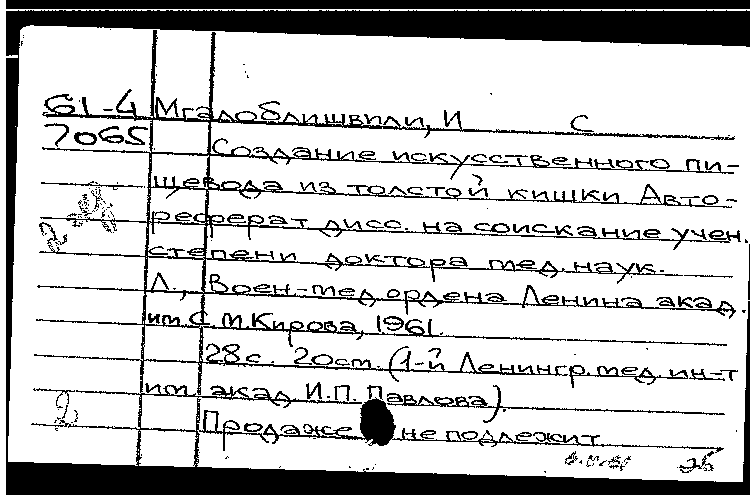 61-4 Мгалоблишвили, И С
7065 Создание искусственного пи-
щевода из толстой кишки Авто-
реферат дисс. на соискание учен.
степени доктора мед. наук.
Л., Воен-мед. ордена Ленина акад.
им. С. М. Кирова, 1961.
28 с. 20 см. (1-й Ленингр. мед. ин-т
им. акад. И.П. Павлова).
2 Продаже не подлежит.
25